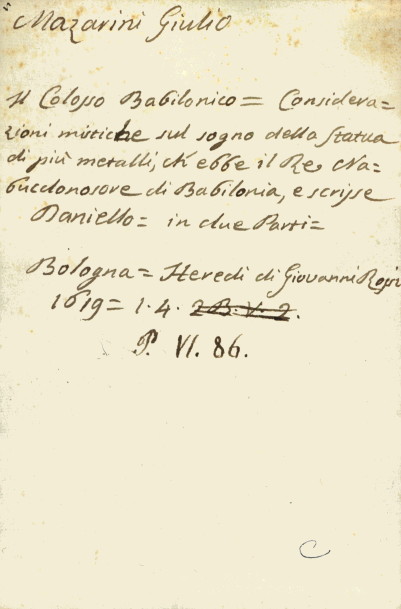 Mazarini Giulio
Il Colosso Babilonico= Considera=
zioni mistiche sul sogno della Statua
di più metalli, ch' ebbe il Re Na=
bucdonosore di Babilonia, e scrisse
Daniello= in due Parti=
Bologna= Heredi di Giovanni Rossi
1619= 1. 4. 2 B. V. 2.
P. VI. 86.
C